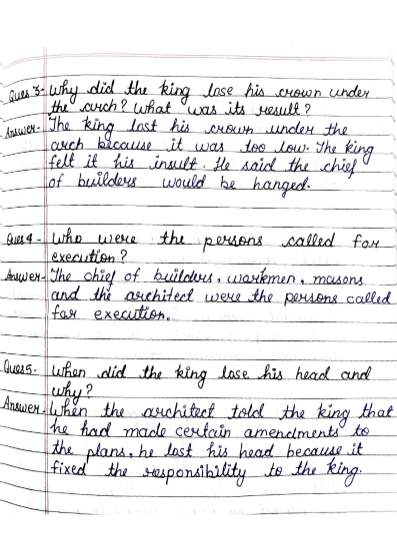 Ques 3- Why did the king lose his crown under
the arch? What was its result?
Answer- The king lost his crown under the
arch because it was too low. The king
felt it his insult. He said the chief
of builders would be hanged.
Ques 4- Who were the persons called for
execution?
Answer- The chief of builders, workmen, masons
and the architect were the persons called
for execution.
Ques 5. When did the king lose his head and
why?
Answer- When the architect told the king that
he had made certain amendments to
the plans, he lost his head because it
fixed the responsibility to the king.